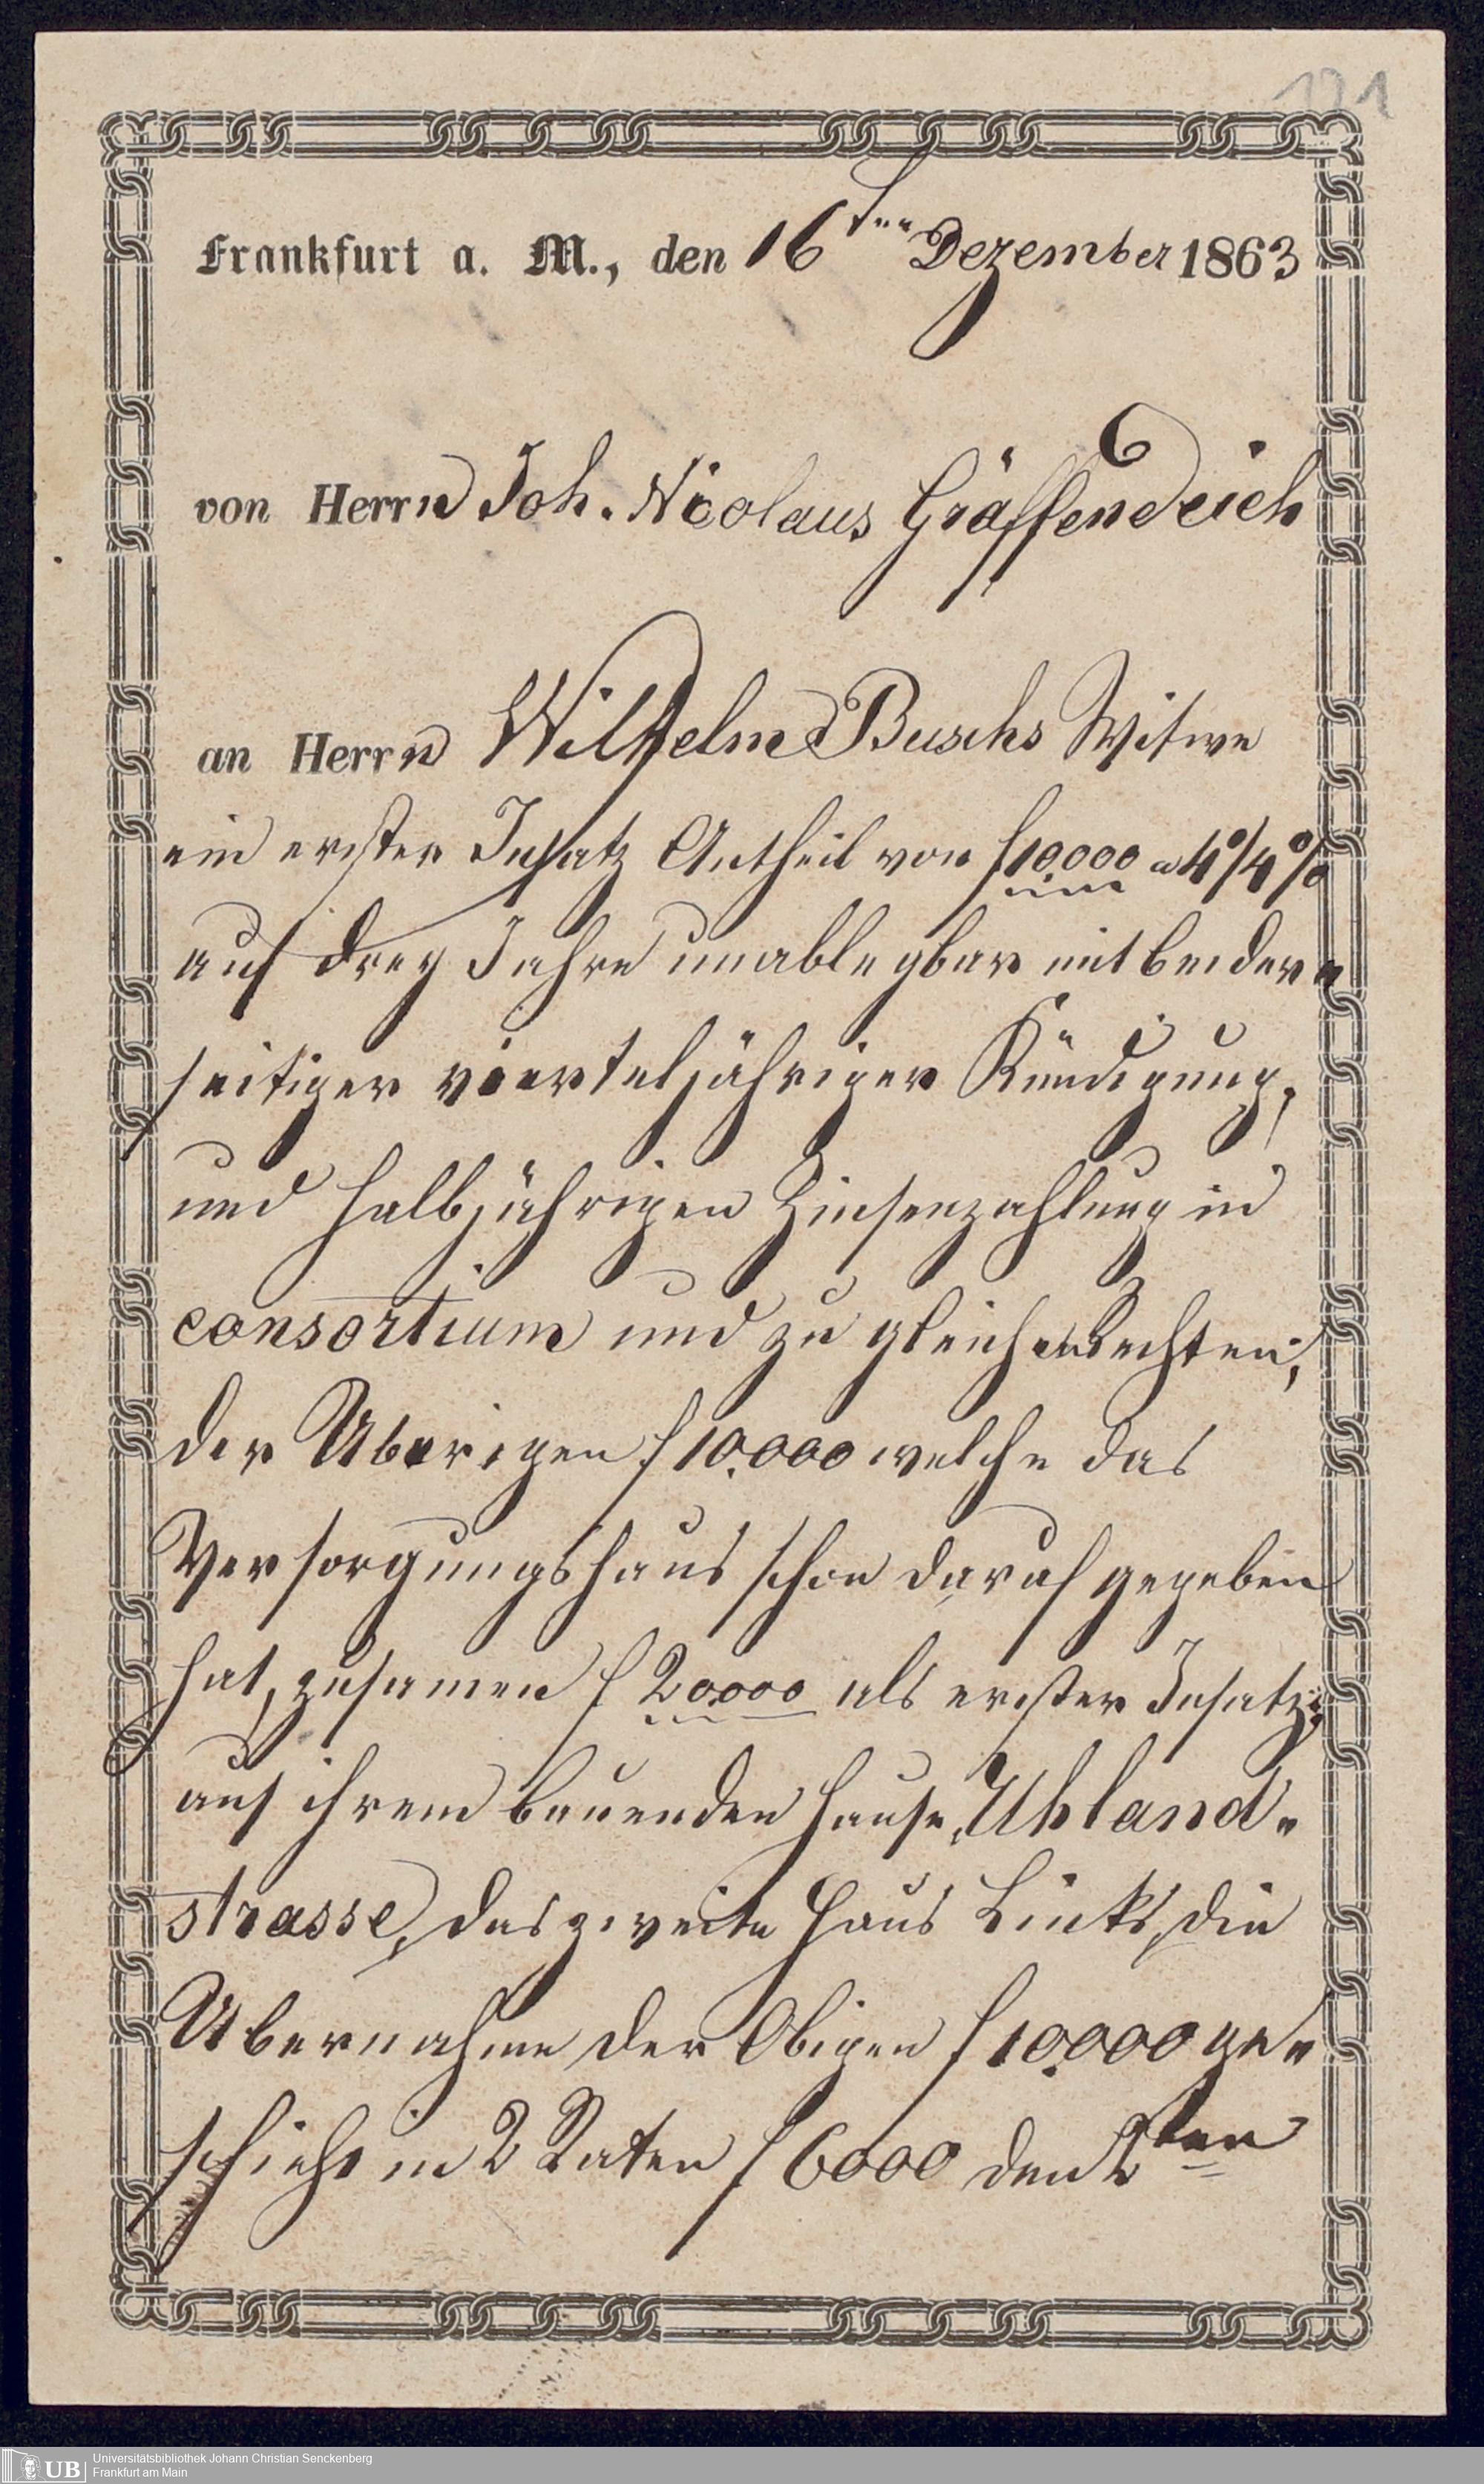 121
Frankfurt a. M., den 16ten Dezember 1863
von Herrn Joh. Nicolaus Gräffendeich
an Herrn Wilhelm Buschs Witwe
ein erster Insatz Antheil von f 10.000 a 4 1/4 %
auf drey Jahre unablegbar mit beider„
seitiger vierteljähriger Kündigung,
und halbjährigen Zinsenzahlung in
consortium und zu gleichen Rechten,
der Uberigen f 10.000 welche das
Versorgungshaus schon daruf gegeben
hat, zusamen f 20.000 als erster Insatz,
auf ihrem bauenden Hause, Uhland„
strasse, das zweite Haus Links, die
Ubernahme der Obigen f 10.000 ge„
schieht in 2 Raten f 6000 den 2ten
UB Universitätsbibliothek Johann Christian Senckenberg
Frankfurt am Main